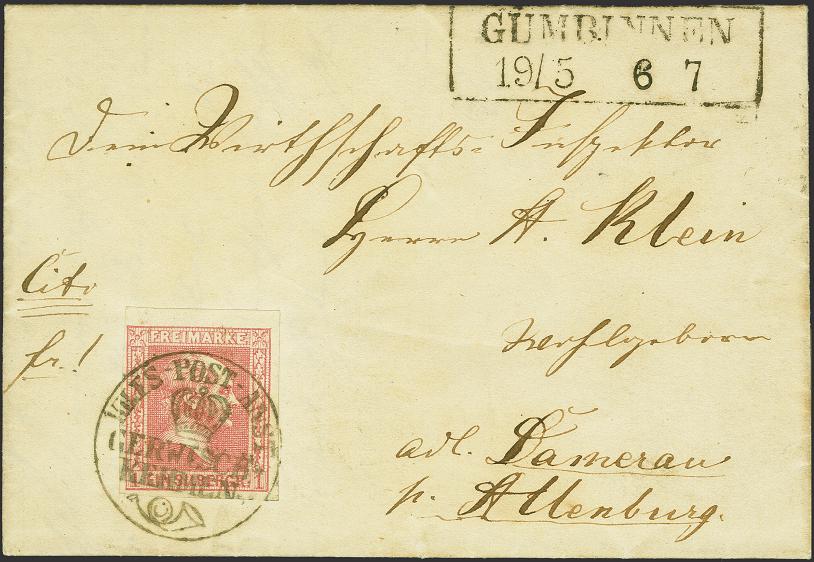 GUMBINNEN
19/5 6 7
Dem Wirthschafts-Inspektor
Herrn A. Klein
Cito
fr.!
Wohlgeboren
adl. Damerau
p. Allenburg.
FREIMARKE
POST
EIN SILBERGR.